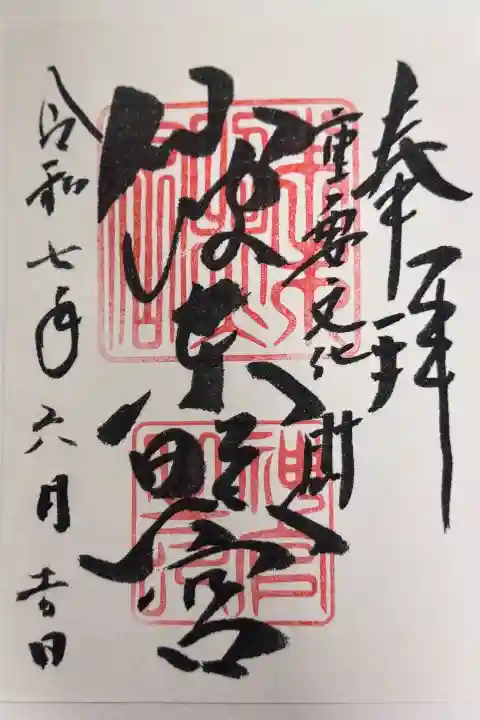 奉拝
重要文化財
仙波東照宮
令和七年六月吉日